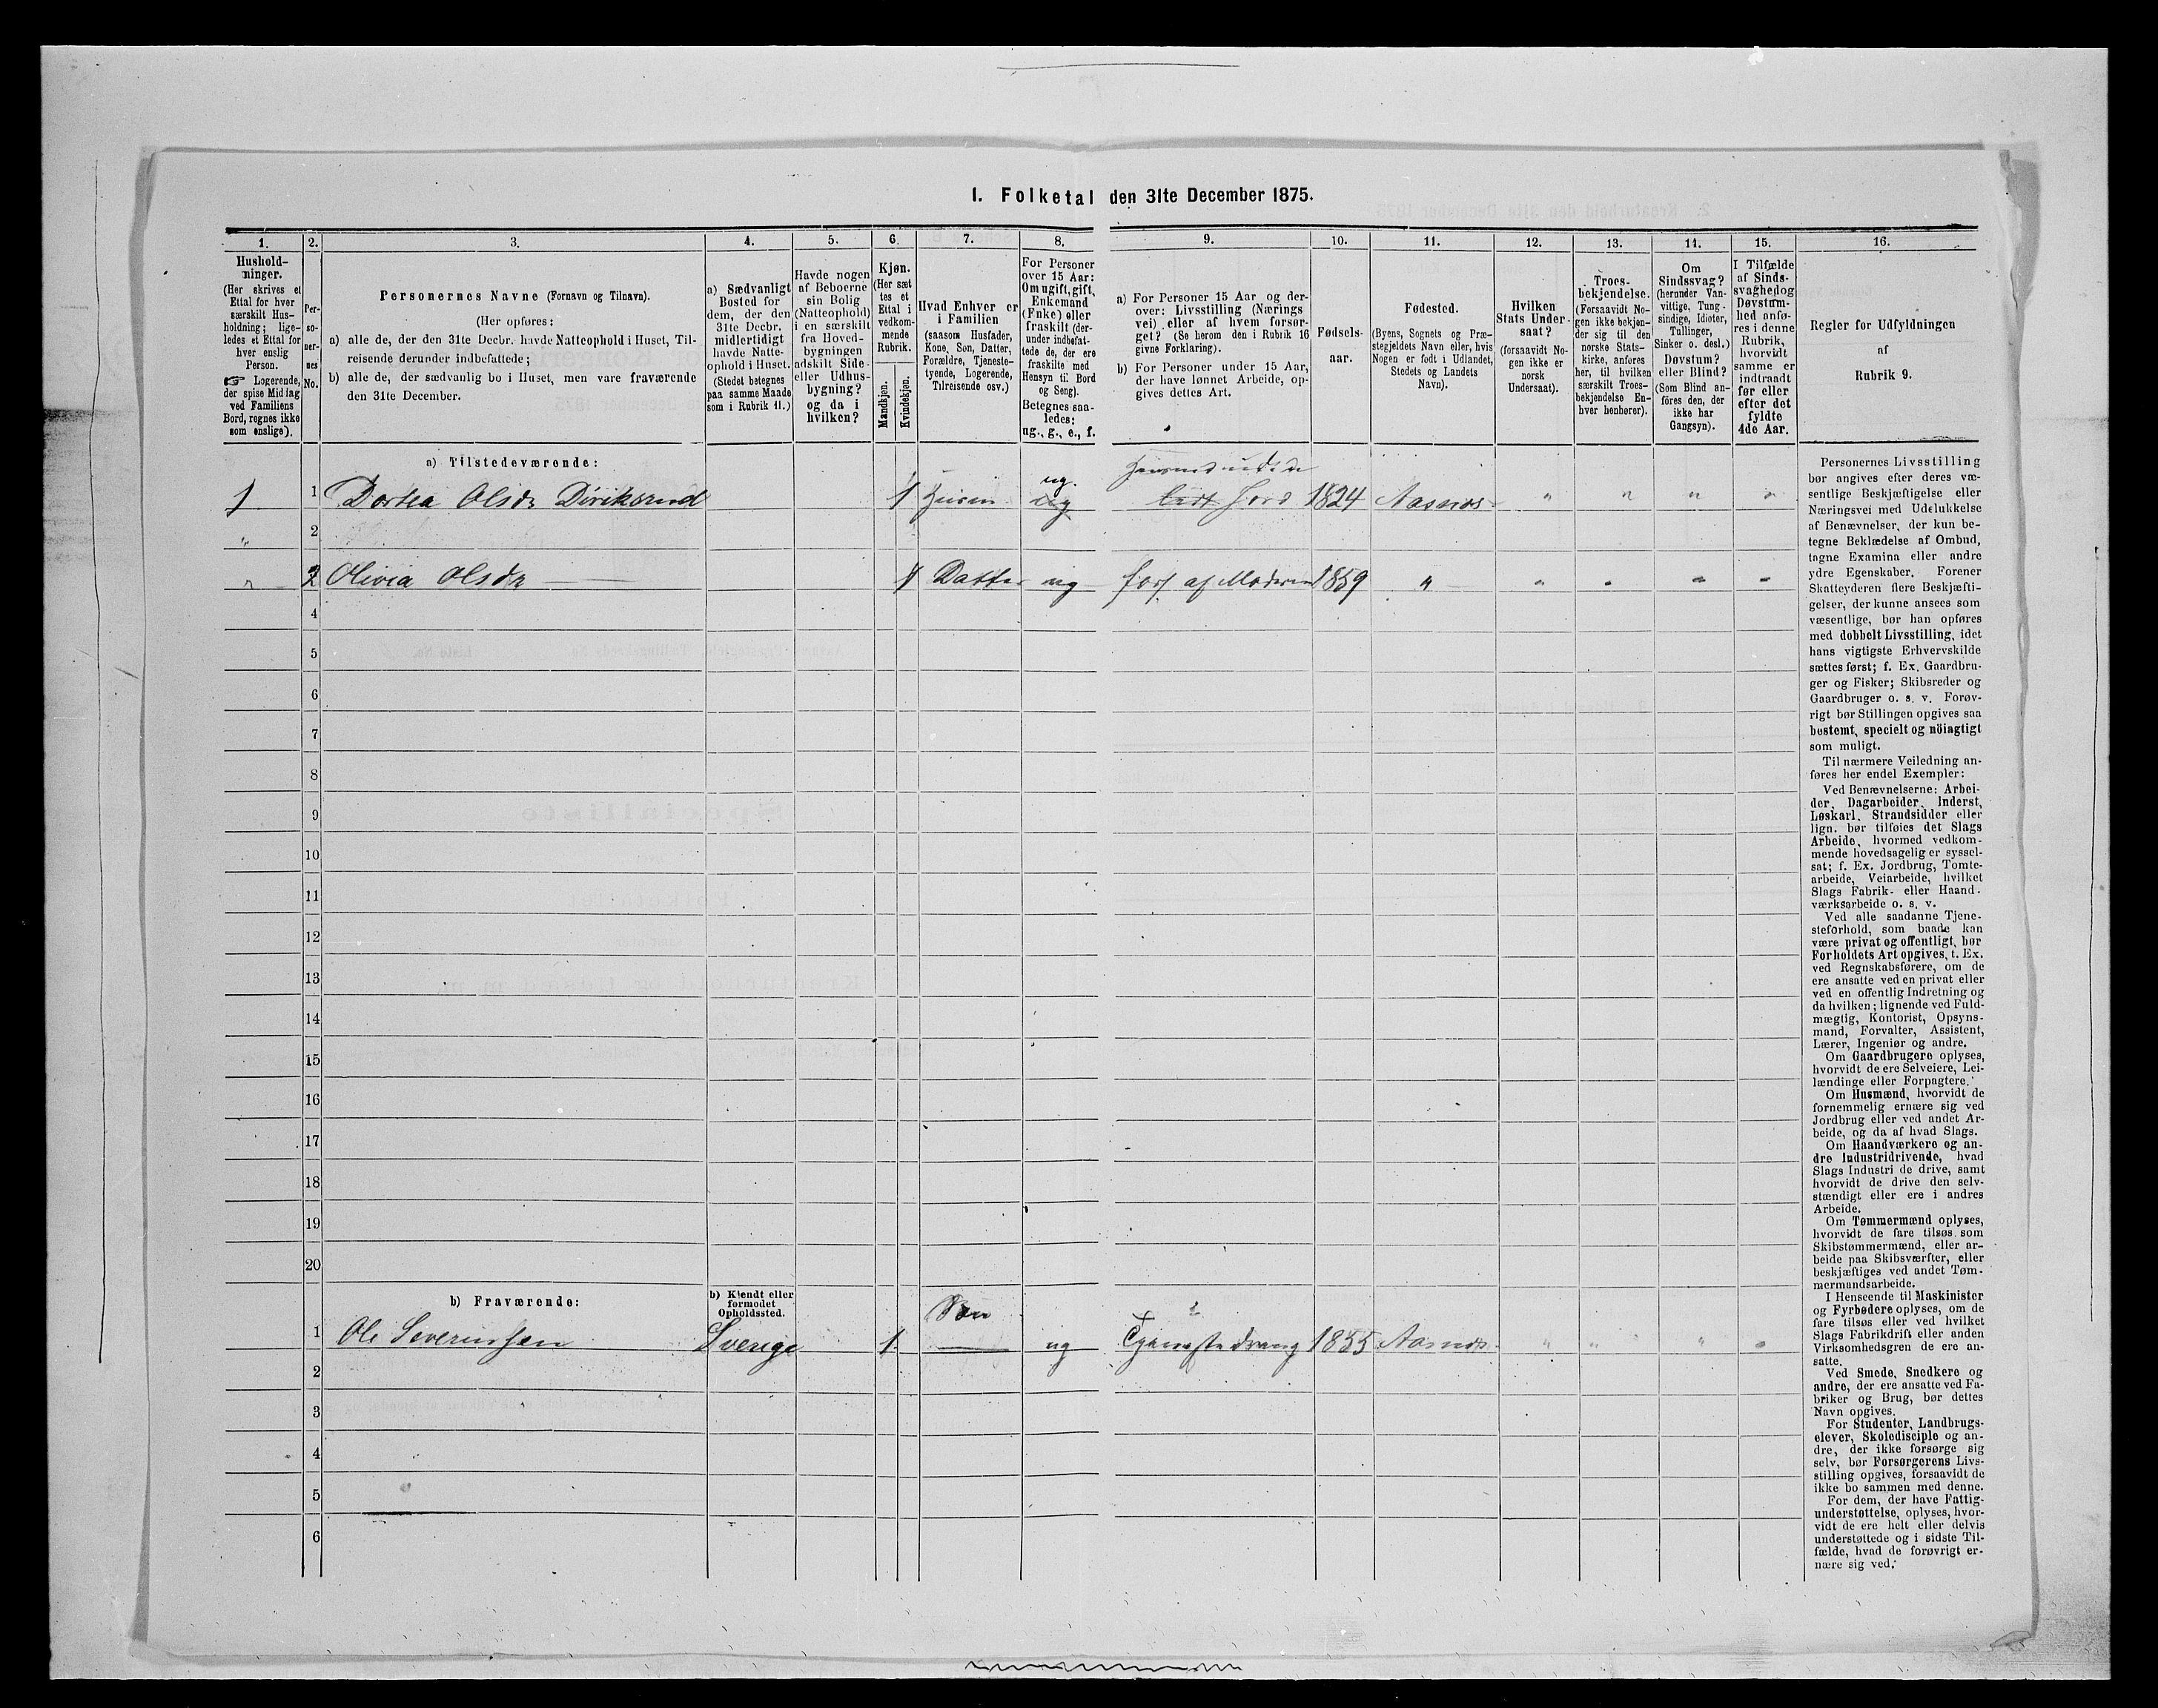 1. Folketal den 31te December 1875.
1. 2. 3. 4. 5. 6. 7. 8. 9. 10. 11. 12. 13. 14. 15. 16.
Hushold-
ninger.
(Her skrives et
Ettal for hver
særskilt Hus-
holdning; lige-
ledes et Ettal for
hver enslig
Person.
☞ Logerende,
der spise Middag
ved Familiens
Bord, regnes ikke
som enslige).
Per-
so-
ner-
nes
No.
Personernes Navne (Fornavn og Tilnavn).
(Her opføres:
a) alle de, der den 31te Decbr. havde Natteophold i Huset, Til-
reisende derunder indbefattede;
b) alle de, der sædvanlig bo i Huset, men vare fraværende
den 31te December.
a) Sædvanligt
Bosted for
dem, der den
31te Decbr.
midlertidigt
havde Natte-
ophold i Huset.
(Stedet betegnes
paa samme Maade
som i Rubrik 11.)
Havde nogen
af Beboerne
sin Bolig
(Natteophold)
i en særskilt
fra Hoved-
bygningen
adskilt Side-
eller Udhus-
bygning?
og da i
hvilken?
Kjøn.
(Her sæt
tes et
Ettal i
vedkom-
mende
Rubrik.
Mandkjøn.
Kvindekjøn.
Hvad Enhver er
i Familien
(saasom Husfader,
Kone, Søn, Datter,
Forældre, Tjeneste-
tyende, Logerende,
Tilreisende osv.)
For Personer
over 15 Aar:
Om ugift, gift,
Enkemand
(Enke) eller
fraskilt (der-
under indbefat-
tede de, der ere
fraskilte med
Hensyn til Bord
og Seng).
Betegnes saa-
ledes:
ug., g., e., f.
a) For Personer 15 Aar og der-
over: Livsstilling (Nærings
vei) eller af hvem forsør-
get? (Se herom den i Rubrik 16
givne Forklaring).
b) For Personer under 15 Aar,
der have lønnet Arbeide, op-
gives dettes Art.
Fødsels-
aar.
Fødested.
(Byens, Sognets og Præ-
stegjeldets Navn eller, hvis
Nogen er født i Udlandet,
Stedets og Landets
Navn).
Hvilken
Stats Under-
saat?
(forsaavidt No-
gen ikke er
norsk
Undersaat).
Troes-
bekjendelse.
(Forsaavidt No-
gen ikke bekjen-
der sig til den
norske Stats-
kirke, anføres
her, til hvilken
særskilt Troes-
bekjendelse En-
hver henhører).
Om
Sindssvag?
(herunder Van-
vittige, Tung-
sindige, Idioter,
Tullinger,
Sinker o. desl.)
Døvstum?
eller Blind?
(Som Blind an-
føres den, der
ikke har
Gangsyn).
I Tilfælde
af Sinds-
svaghed og
Døvstum-
hed anfø-
res i denne
Rubrik,
hvorvidt
samme er
indtraadt
før eller
efter det
fyldte
4de Aar.
Regler for Udfyldningen
af
Rubrik 9.
a) Tilstedeværende:
1 1 Dortea Olsdr Diriksrud 1 ug. ug Jord 1824 Aasnæs " " " "
" 2
" 2 Olivia Olsdr 1 Datter ug fors af Moderen 1859 " " " " "
4
5
6
7
8
9
10
11
12
13
14
15
16
17
18
19
20
b) Fraværende:
b) Kjendt eller
formodet
Opholdssted.
Søn
1 Ole Severinsen Sverige 1 ug Tjenestedreng 1855 Aasnæs " " " "
2
3
4
5
6
Personernes Livsstilling
bør angives efter deres væ-
sentlige Beskjæftigelse eller
Næringsvei med Udelukkelse
af Benævnelser, der kun be-
tegne Beklædelse af Ombud,
tagne Examina eller andre
ydre Egenskaber. Forener
Skatteyderen flere Beskjæfti-
gelser, der kunne ansees som
væsentlige, bør han opføres
med dobbelt Livsstilling, idet
hans vigtigste Erhvervskilde
sættes først; f. Ex. Gaardbru-
ger og Fisker; Skibsreder og
Gaardbruger o. s. v. Forøv-
rigt bør Stillingen opgives saa
bestemt, specielt og nöiagtigt
som muligt.
Til nærmere Veiledning an-
føres her endel Exempler:
Ved Benævnelserne: Arbei-
der, Dagarbeider, Inderst,
Løskarl, Strandsidder eller
lign. bør tilføies det Slags
Arbeide, hvormed vedkom-
mende hovedsagelig er syssel-
sat; f. Ex. Jordbrug, Tomte-
arbeide, Veiarbeide, hvilket
Slags Fabrik- eller Haand-
værksarbeide o. s. v.
Ved alle saadanne Tjene-
steforhold, som baade kan
være privat og offentligt, bør
Forholdets Art opgives, t. Ex.
ved Regnskabsførere, om de
ere ansatte ved en privat eller
ved en offentlig Indretning og
da hvilken; lignende ved Fuld-
mægtig, Kontorist, Opsyns-
mand, Forvalter, Assistent,
Lærer, Ingeniør og andre.
Om Gaardbrugere oplyses,
hvorvidt de ere Selveiere, Lei-
lændinge eller Forpagtere.
Om Husmænd, hvorvidt de
fornemmelig ernære sig ved
Jordbrug eller ved andet Ar-
beide, og da af hvad Slags.
Om Haandværkere og an-
dre Industridrivende, hvad
Slags Industri de drive, samt
hvorvidt de drive den selv-
stændigt eller ere i andres
Arbeide.
Om Tømmermænd oplyses,
hvorvidt de fare tilsøs som
Skibstømmermænd, eller ar-
beide paa Skibsværfter, eller
beskjæftiges ved andet Tøm-
mermandsarbeide.
I Henseende til Maskinister
og Fyrbødere oplyses, om de
fare tilsøs eller ved hvilket
Slags Fabrikdrift eller anden
Virksomhedsgren de ere an-
satte.
Ved Smede, Snedkere og
andre, der ere ansatte ved Fa-
briker og Brug, bør dettes
Navn opgives.
For Studenter, Landbrugs-
elever, Skoledisciple og an-
dre, der ikke forsørge sig
selv, bør Forsørgerens Livs-
stilling opgives, forsaavidt de
ikke bo sammen med denne.
For dem, der have Fattig-
understøttelse, oplyses, hvor-
vidt de ere helt eller delvis
understøttede og i sidste Til-
fælde, hvad de forøvrigt er-
nære sig ved.